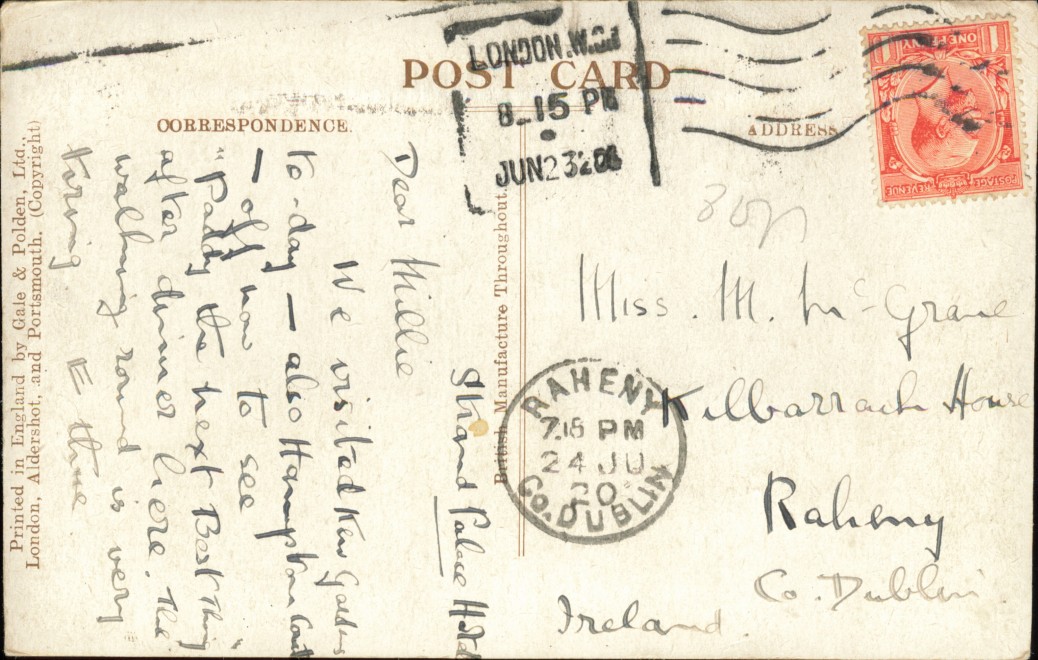 POST CARD
CORRESPONDENCE.
ADDRESS
LONDON. W.C.1
8. 15 PM
JUN 23 20
ONE PENNY
1 1
POSTAGE REVENUE
Strand Palace Hotel
Dear Millie
We visited Kew Gardens
to-day — also Hampton Court
— off now to see
"Paddy the next Best Thing"
after dinner here. The
walking round is very
tiring E
Miss. M. McGrane
Kilbarrack House
Raheny
Co. Dublin
Ireland.
RAHENY
7.15 PM
24 JU
20
Co. DUBLIN
British Manufacture Throughout
Printed in England by Gale & Polden, Ltd.,
London, Aldershot, and Portsmouth. (Copyright)